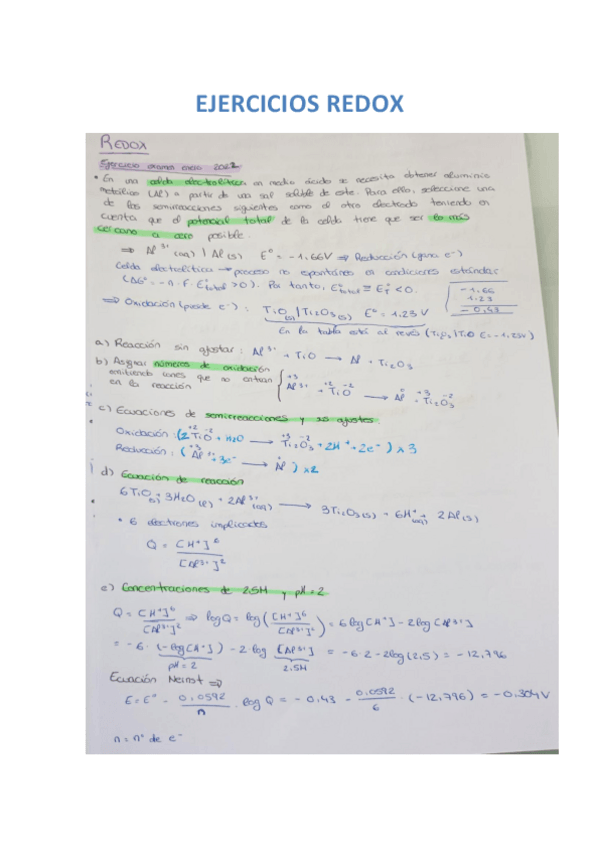 EJERCICIOS REDOX
REDOX
Ejercicio examen enero 2022
• En una celda electrolítica en medio ácido se necesita obtener aluminio
metálico (Al) a partir de una sal soluble de este. Para ello, seleccione una
de las semirreacciones siguientes como el otro electrodo teniendo en
cuenta que el potencial total de la celda tiene que ser lo más
cercano a cero posible.
⇒ Al³⁺(aq) | Al(s) E° = -1.66V ⇒ Reducción (gana e⁻)
Celda electrolítica → proceso no espontáneo en condiciones estándar
(ΔG° = -n·F·E°total > 0). Por tanto, E°total ≡ E°T < 0.
-1.66
1.23
-0.43
⇒ Oxidación (pierde e⁻): TiO(s) | Ti₂O₃(s) E° = 1.23 V
En la tabla está al revés (Ti₂O₃ | TiO E = -1.23V)
a) Reacción sin ajustar: Al³⁺ + TiO → Al + Ti₂O₃
b) Asignar números de oxidación
omitiendo iones que no entran
en la reacción
+3 +2 -2 0 +3 -2
Al³⁺ + TiO → Al + Ti₂O₃
c) Ecuaciones de semirreacciones y sus ajustes.
+2 -2 +3 -2
Oxidación: (2TiO + H₂O → Ti₂O₃ + 2H⁺ + 2e⁻) x 3
+3 0
Reducción: (Al³⁺ + 3e⁻ → Al) x 2
d) Ecuación de reacción
6TiO(s) + 3H₂O(l) + 2Al³⁺(aq) → 3Ti₂O₃(s) + 6H⁺(aq) + 2Al(s)
• 6 electrones implicados
Q = [H⁺]⁶ / [Al³⁺]²
e) Concentraciones de 2.5M y pH = 2
Q = [H⁺]⁶ / [Al³⁺]² ⇒ log Q = log ([H⁺]⁶ / [Al³⁺]²) = 6 log [H⁺] - 2 log [Al³⁺]
= -6 · (-log [H⁺]) - 2 · log [Al³⁺] = -6·2 - 2log (2,5) = -12,796
pH = 2 2.5M
Ecuación Nernst ⇒
E = E° - 0,0592 / n · log Q = -0,43 - 0,0592 / 6 · (-12,796) = -0,304V
n = nº de e⁻